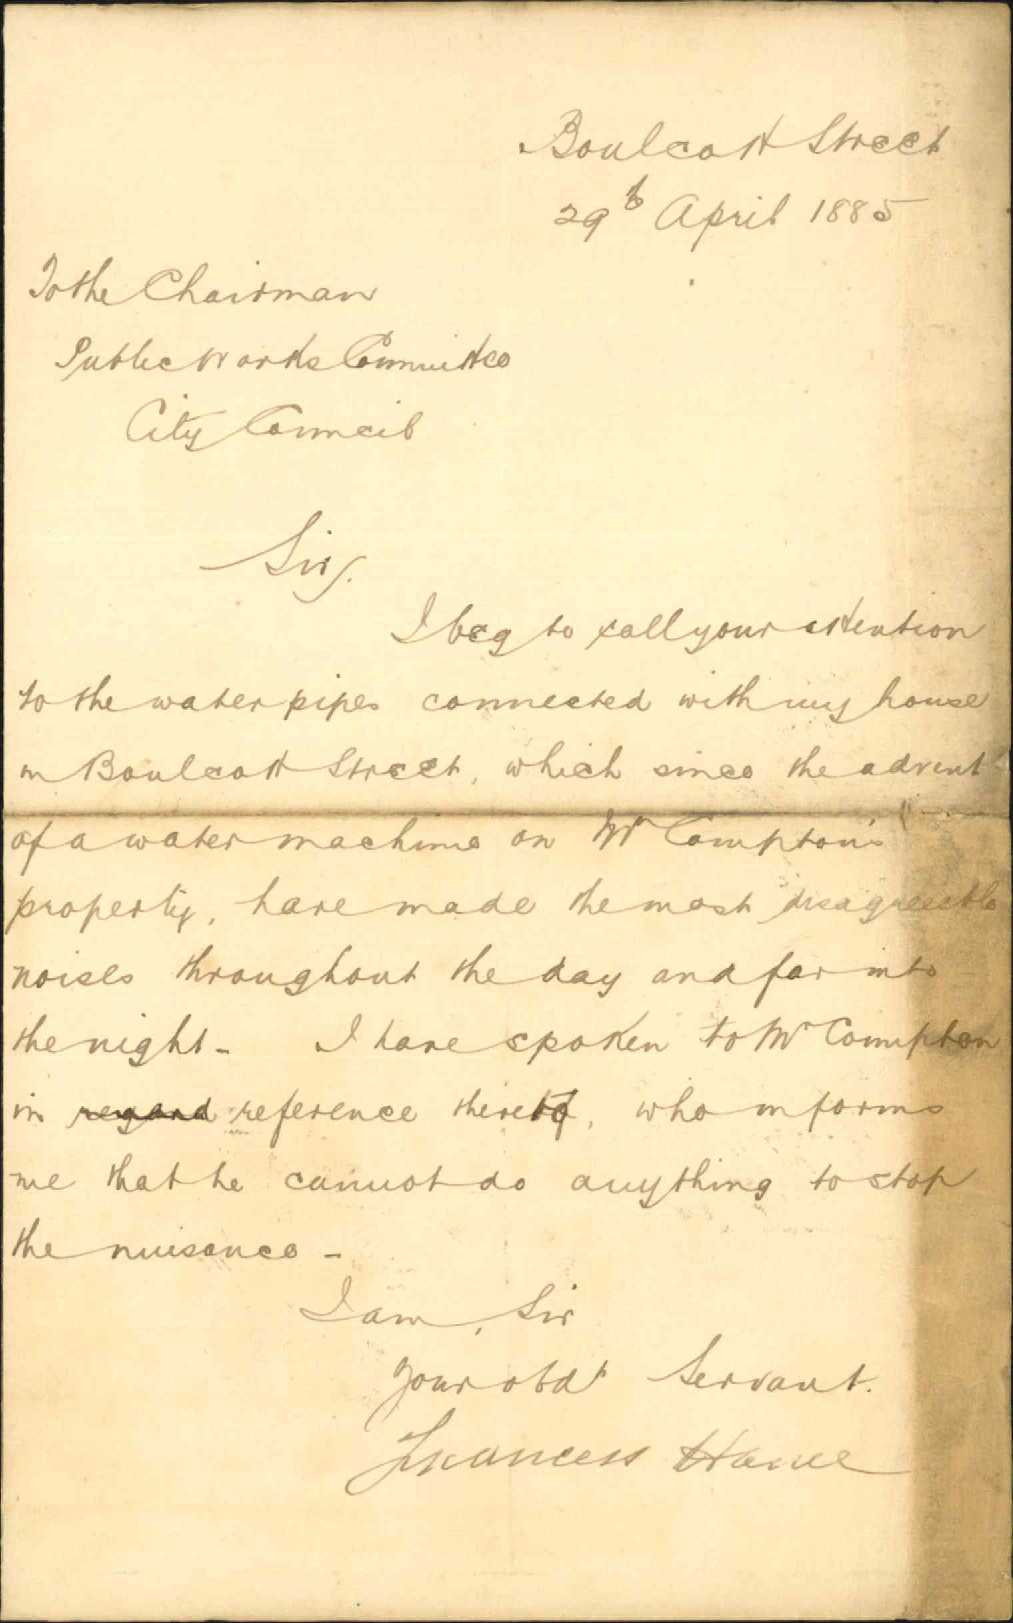 Boulcott Street
29th April 1885
To the Chairman
Public Works Committee
City Council
Sir,
I beg to call your attention
to the water pipes connected with my house
in Boulcott Street, which since the advent
of a water machine on Mr Compton's
property, have made the most disagreeable
noises throughout the day and far into
the night - I have spoken to Mr Compton
in regard reference thereto, who informs
me that he cannot do anything to stop
the nuisance -
I am, Sir
Your obdt Servant.